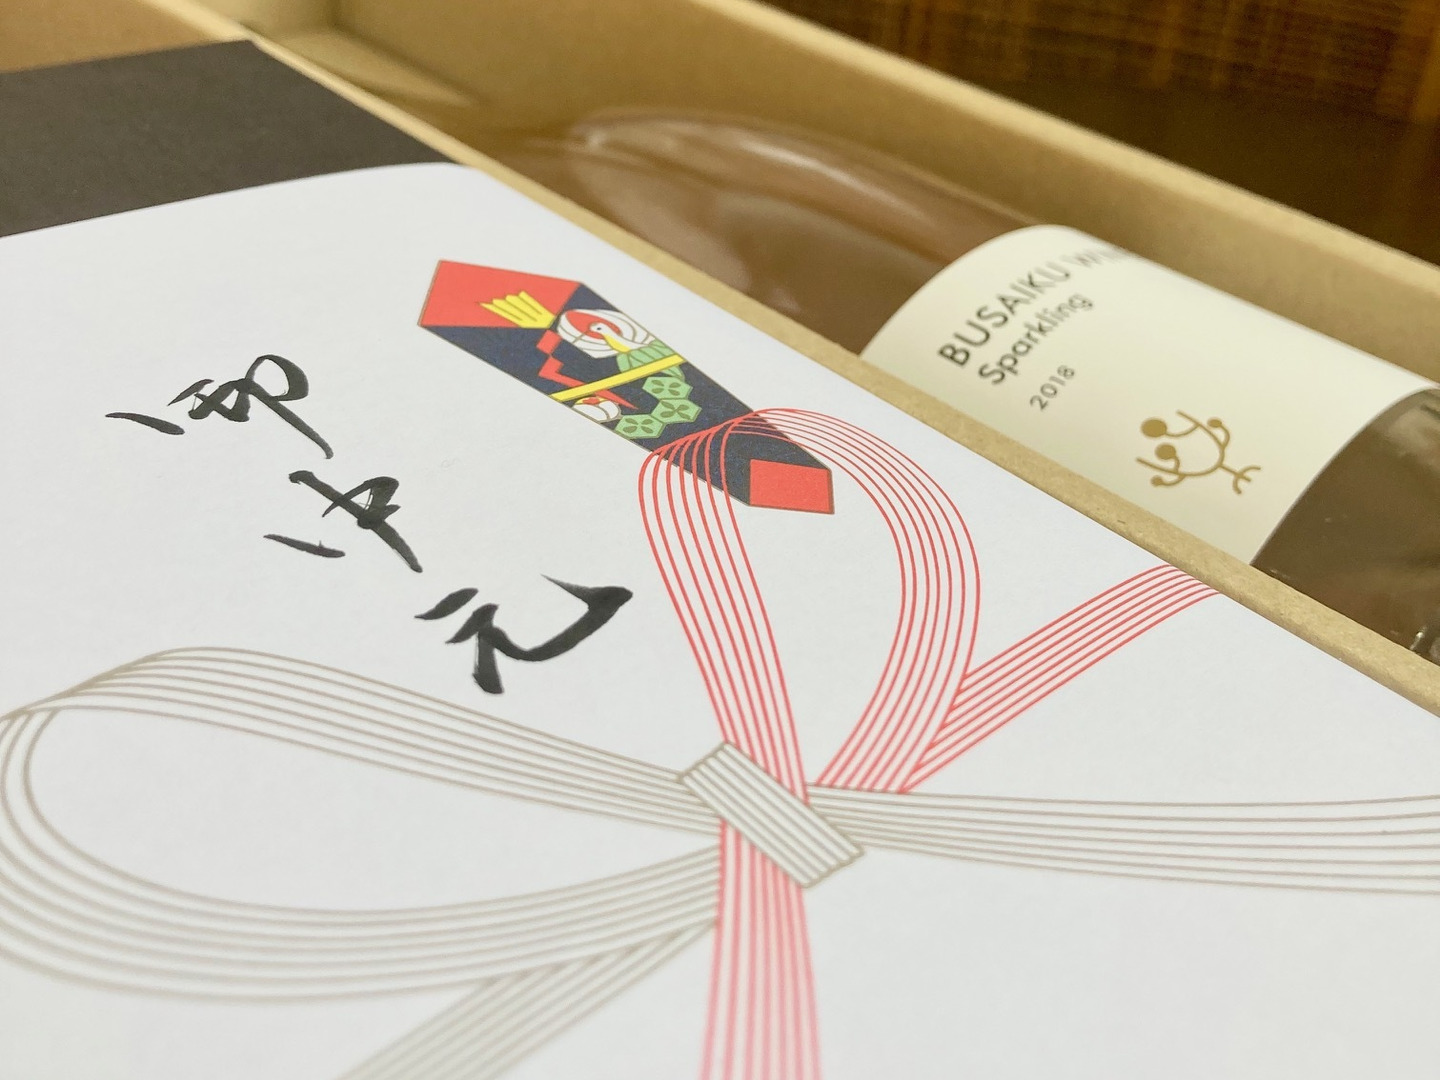 御中元
BUSAIKU WINE
Sparkling
2018